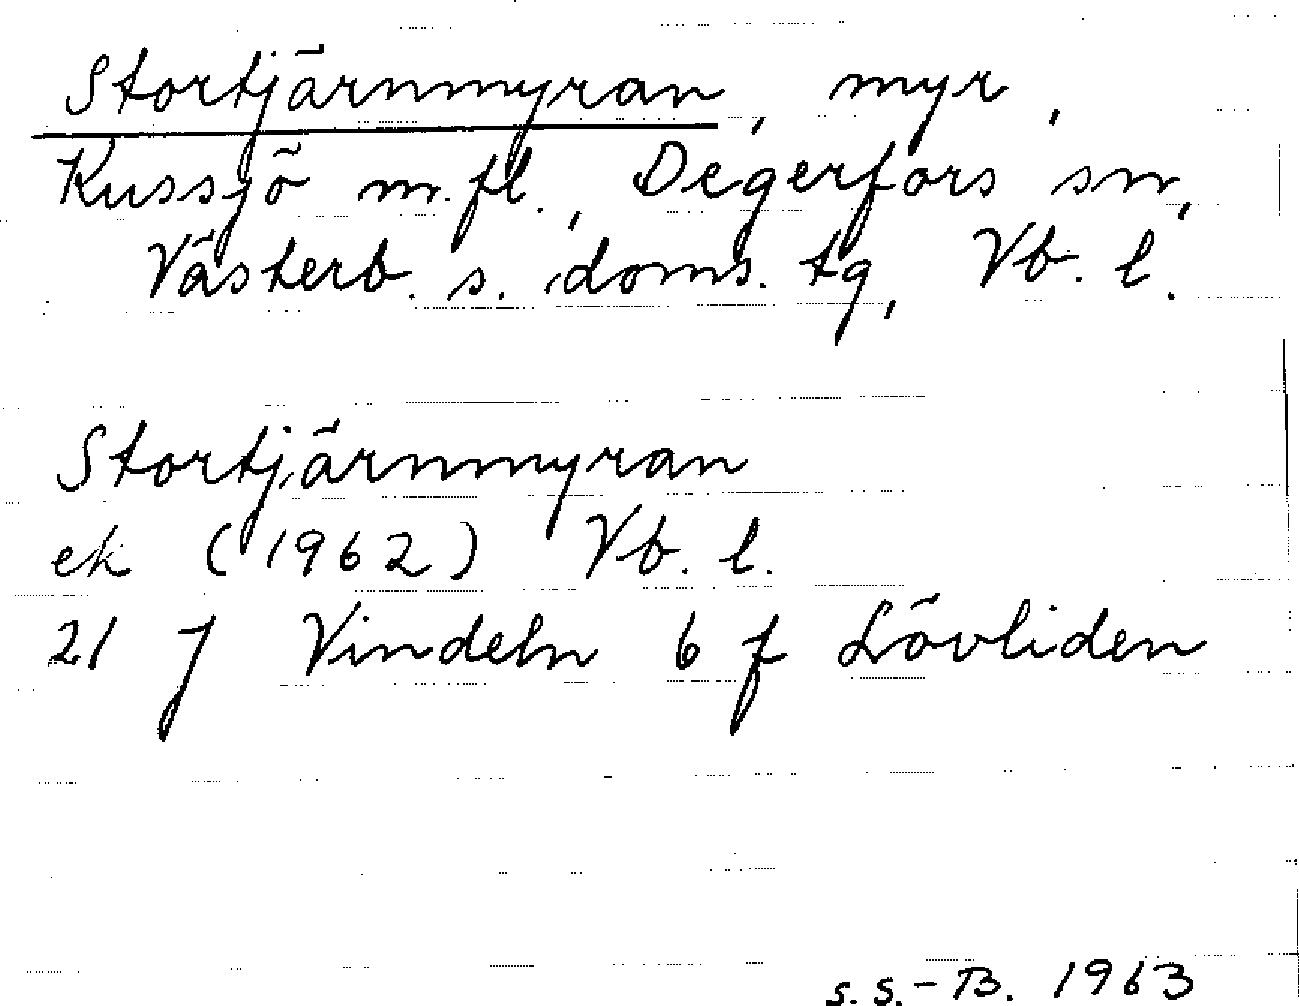 Stortjärnmyran, myr,
Kussjö m.fl., Degerfors sn,
Västerb. s. doms. tg, Vb. l.
Stortjärnmyran
ek (1962) Vb. l.
21 J Vindeln 6 f Lövliden
S.S.-B. 1963